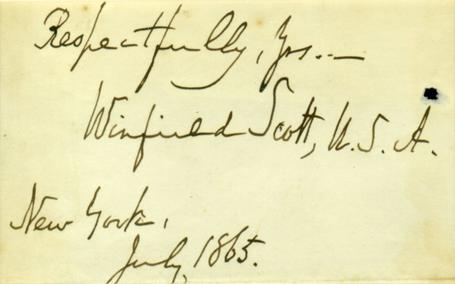 Respectfully, Yrs.—
Winfield Scott, U. S. A.
New York,
July, 1865.